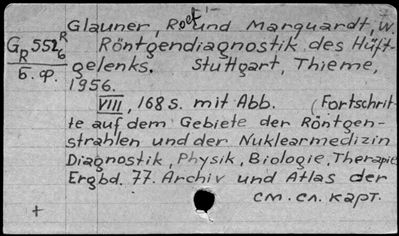 Glauner, Rolf und Marquardt, W.
Röntgendiagnostik des Hüft-
gelenks. Stuttgart, Thieme,
1956.
VIII, 168 s. mit Abb. (Fortschrit-
te auf dem Gebiete der Röntgen-
strahlen und der Nuklearmedizin
Diagnostik, Physik, Biologie, Therapie
Ergbd. 77. Archiv und Atlas der
см. сл. карт.
G 552 R
R 6
б. ф.
+